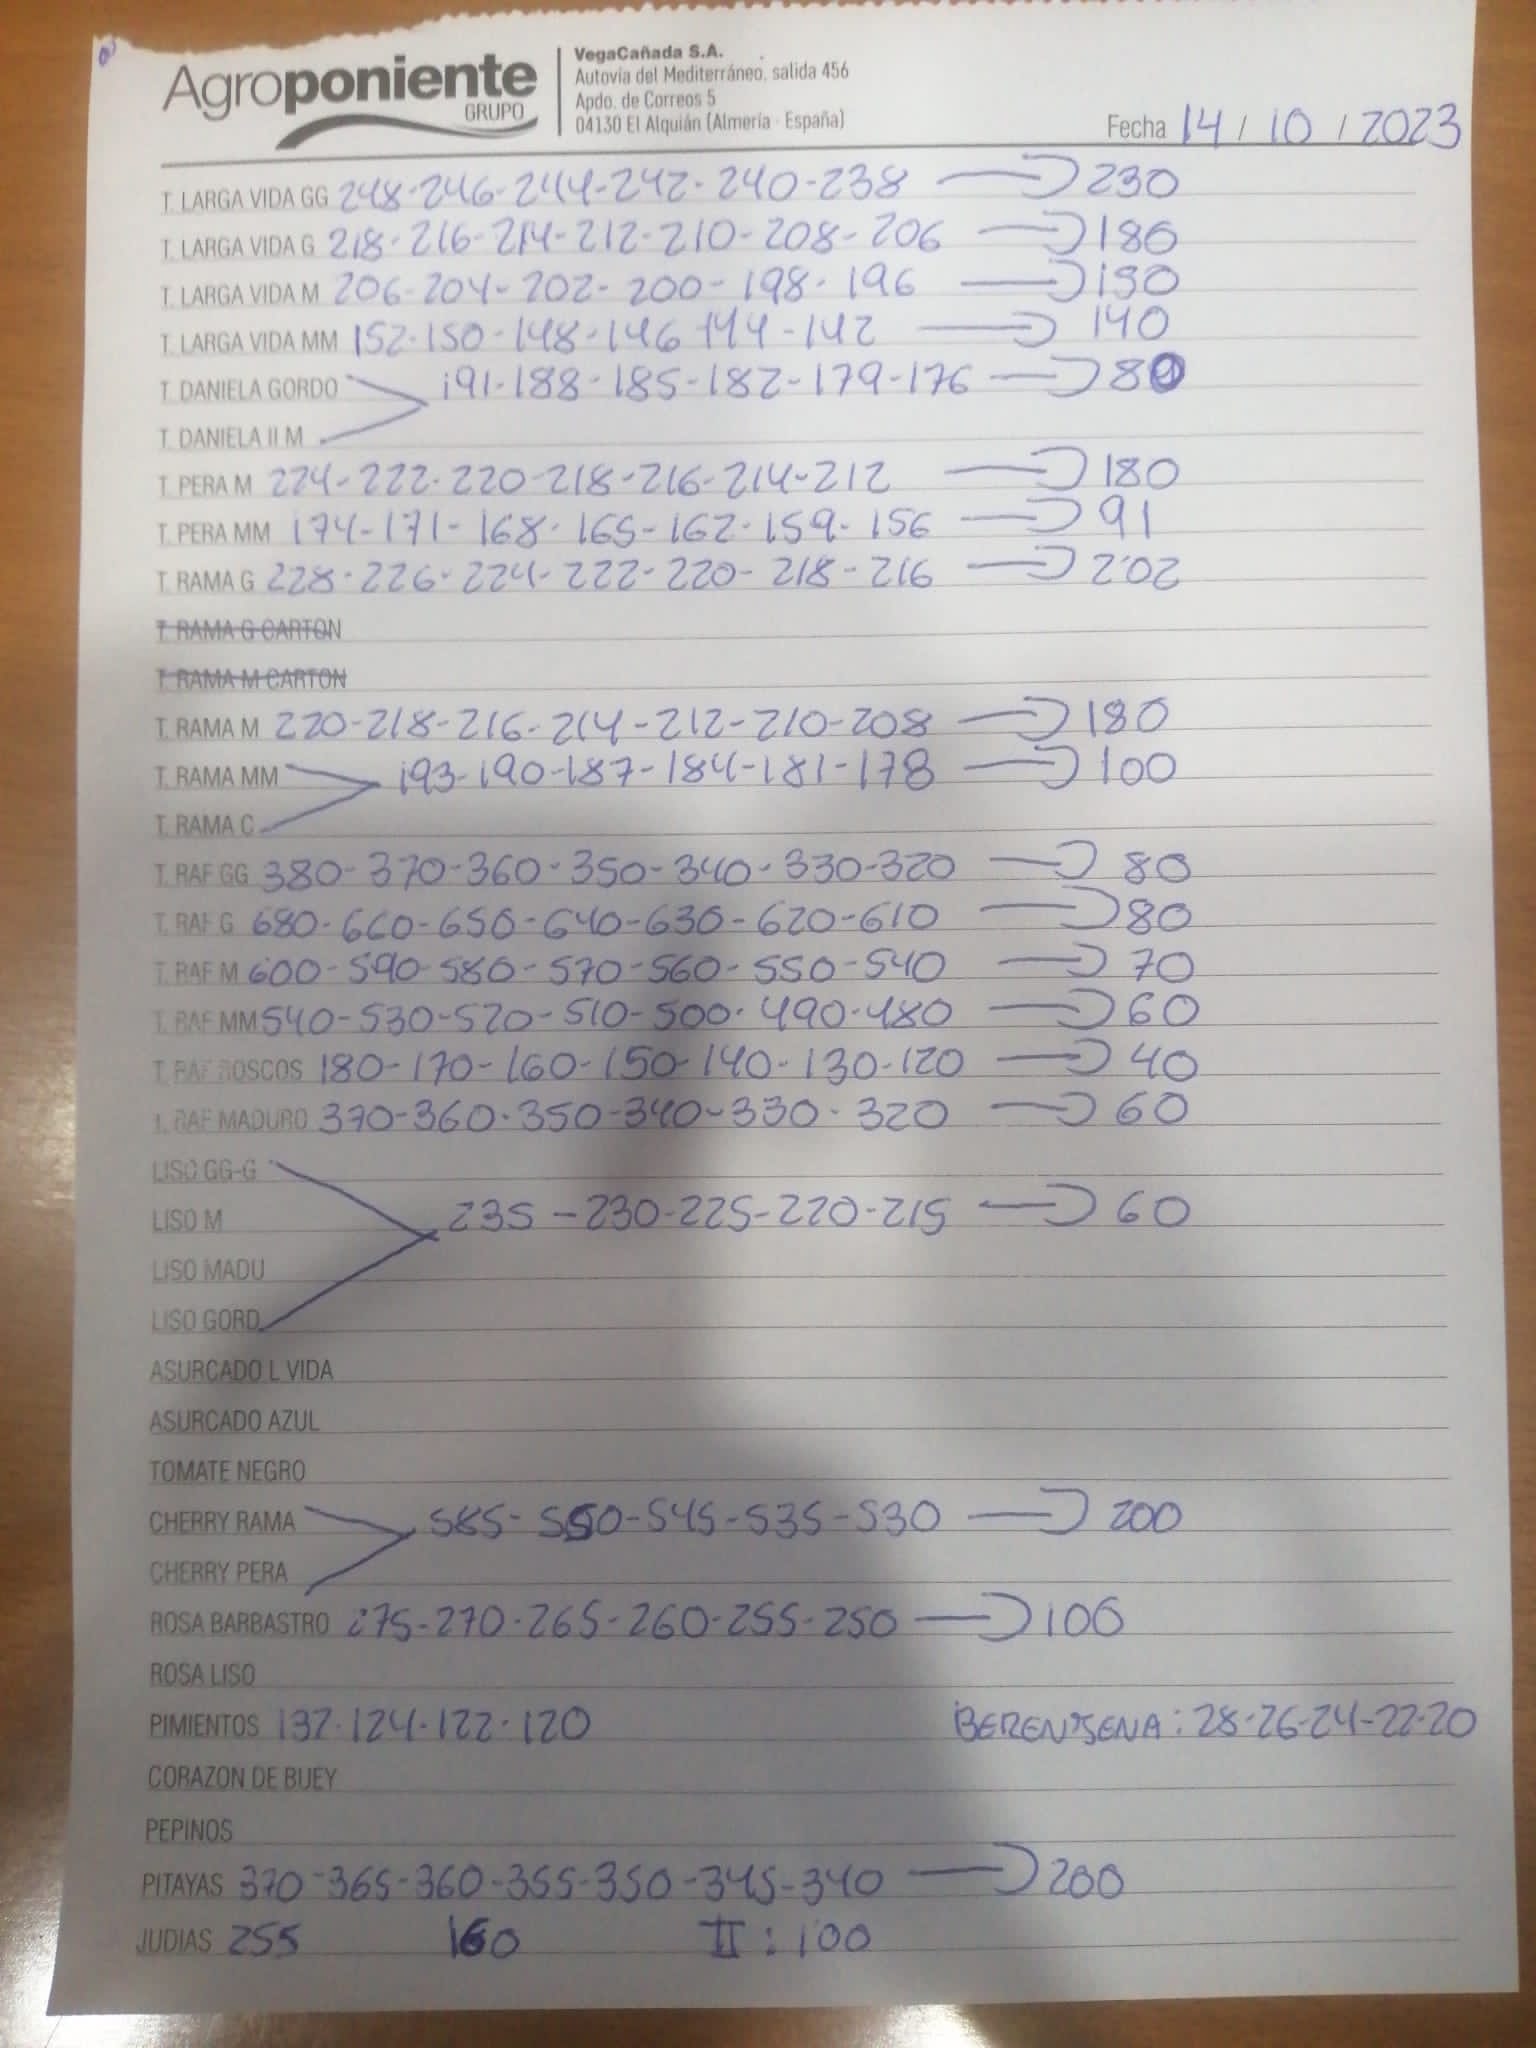 Agroponiente
GRUPO
VegaCañada S.A.
Autovía del Mediterráneo, salida 456
Apdo. de Correos 5
04130 El Alquián (Almería - España)
Fecha 14 / 10 / 2023
T. LARGA VIDA GG 248-246-244-242-240-238 → 230
T. LARGA VIDA G 218-216-214-212-210-208-206 → 180
T. LARGA VIDA M 206-204-202-200-198-196 → 190
T. LARGA VIDA MM 152-150-148-146-144-142 → 140
T. DANIELA GORDO 191-188-185-182-179-176 → 80
T. DANELA II M
T. PERA M 224-222-220-218-216-214-212 → 180
T. PERA MM 174-171-168-165-162-159-156 → 91
T. RAMA G 228-226-224-222-220-218-216 → 202
T. RAMA G CARTON
T. RAMA M CARTON
T. RAMA M 220-218-216-214-212-210-208 → 180
T. RAMA MM 193-190-187-184-181-178 → 100
T. RAMA C
T. RAF GG 380-370-360-350-340-330-320 → 80
T. RAF G 680-660-650-640-630-620-610 → 80
T. RAF M 600-590-580-570-560-550-540 → 70
T. RAF MM 540-530-520-510-500-490-480 → 60
T. RAF ROSCOS 180-170-160-150-140-130-120 → 40
T. RAF MADURO 370-360-350-340-330-320 → 60
LISO GG-G
LISO M 235-230-225-220-215 → 60
LISO MADU
LISO GORD
ASURCADO L VIDA
ASURCADO AZUL
TOMATE NEGRO
CHERRY RAMA 585-550-545-535-530 → 200
CHERRY PERA
ROSA BARBASTRO 275-270-265-260-255-250 → 100
ROSA LISO
PIMIENTOS 132-124-122-120 BERENJENA: 28-26-24-22-20
CORAZON DE BUEY
PEPINOS
PITAYAS 370-365-360-355-350-345-340 → 200
JUDIAS 255 160 II: 100